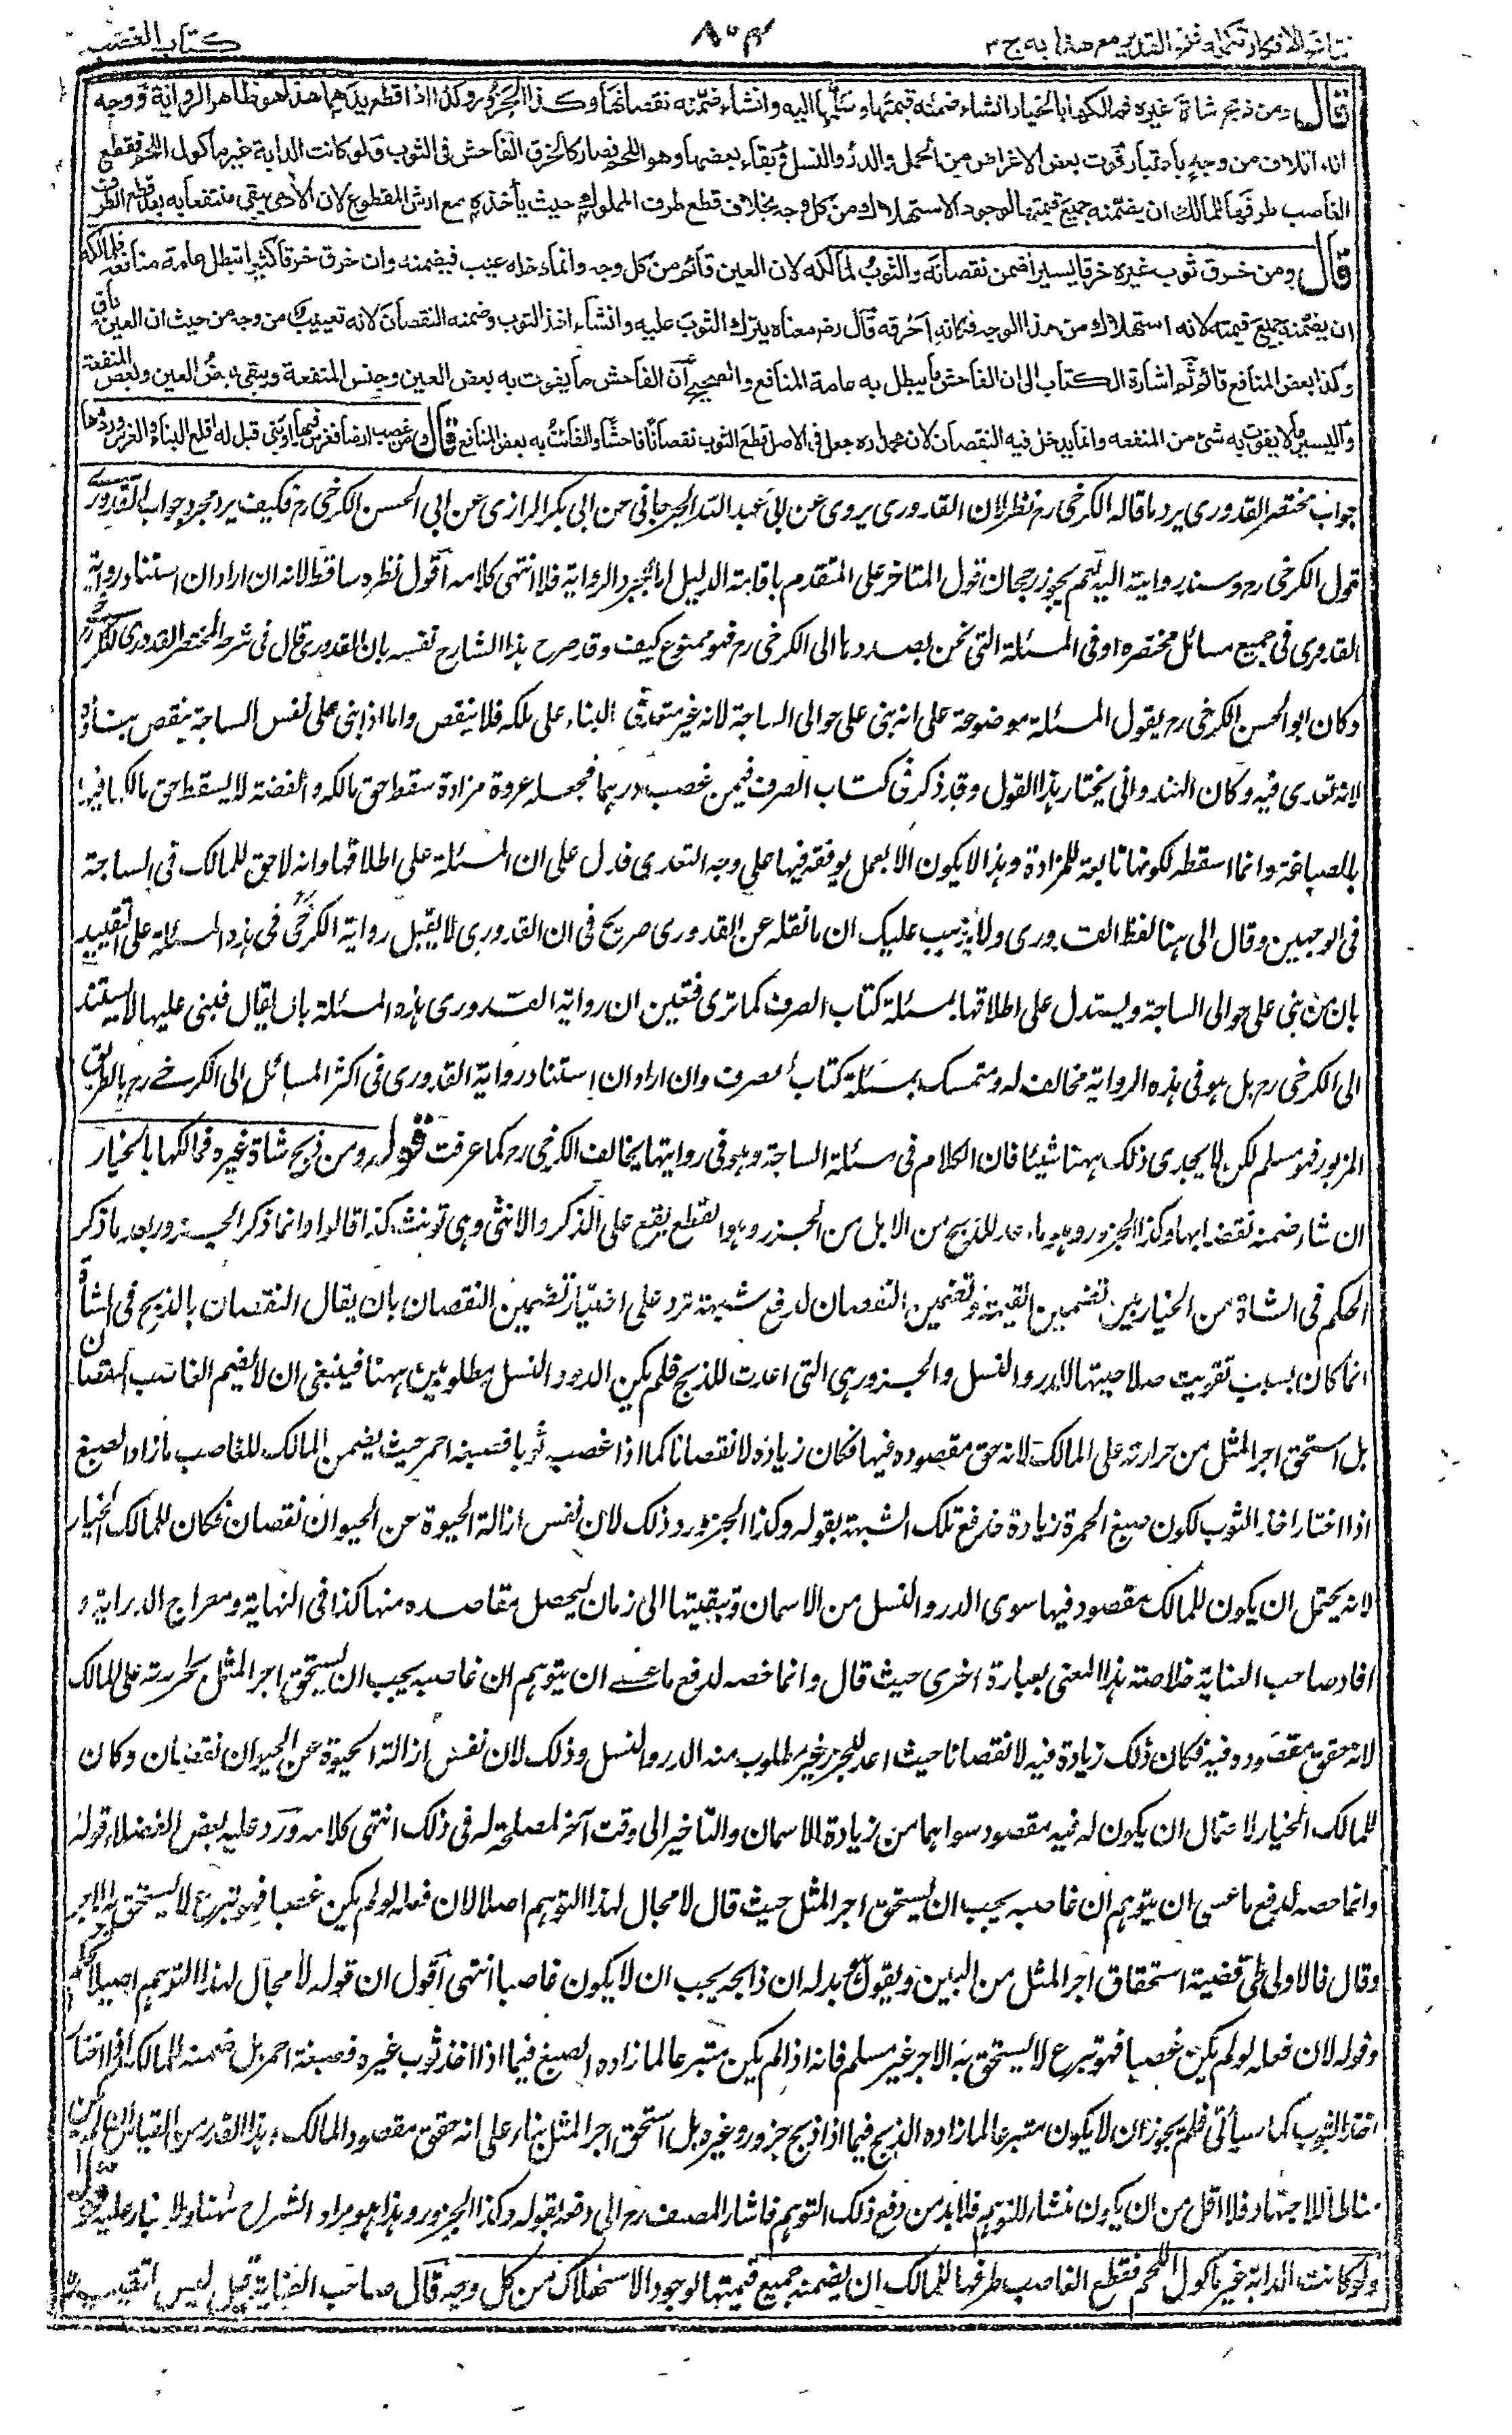 نتائج الافكار تكملة فتح القدير مع هدايه ج ٣
٨٠٣
كتاب الغصب
قال ومن ذبح شاة غيره فمالكها بالخيار ان شاء ضمنه قيمتها وسلمها اليه وان شاء ضمنه نقصانها وكذا الجزور وكذا اذا قطع يدهما هذا هو ظاهر الرواية ووجهه
انه اتلاف من وجه باعتبار فوت بعض الاغراض من الحمل والدر والنسل وبقاء بعضها وهو اللحم فصار كالخرق الفاحش فى الثوب ولو كانت الدابة غير ماكول اللحم فقطع
الغاصب طرفها للمالك ان يضمنه جميع قيمتها لوجود الاستهلاك من كل وجه بخلاف قطع طرف المملوك حيث يأخذه مع ارش المقطوع لان الآدمى يبقى منتفعا به بعد قطع الطرف
قال ومن خرق ثوب غيره خرقا يسيرا ضمن نقصانه والثوب لمالكه لان العين قائم من كل وجه وانما دخله عيب فيضمنه وان خرق خرقا كثيرا تبطل عامة منافعه فلمالكه
ان يضمنه جميع قيمته لانه استهلاك من هذا الوجه فكانه احرقه قال رض معناه يترك الثوب عليه وان شاء اخذ الثوب وضمنه النقصان لانه تعييب من وجه من حيث ان العين باق
وكذا بعض المنافع قائم ثم اشارة الكتاب الى ان الفاحش ما يبطل به عامة المنافع والصحيح ان الفاحش ما يفوت به بعض العين وجنس المنفعة ويبقى بعض العين وبعض المنفعة
واليسير ما لا يفوت به شئ من المنفعه وانما يدخل فيه النقصان لان محمدا ره جعل فى الاصل قطع الثوب نقصانا فاحشا والفائت به بعض المنافع قال ومن غصب ارضا فغرس فيها او بنى قيل له اقلع البناء والغرس وردها
جواب مختصر القدورى يرد ما قاله الكرخى رم نظر لان القدورى يروى عن ابى عبد الله الجرجانى عن ابى بكر الرازى عن ابى الحسن الكرخى رم فكيف يرد مجرد جواب القدورى
قول الكرخى رم وسند روايته اليه نعم يجوز رجحان قول المتاخر على المتقدم باقامة الدليل اما بمجرد الرواية فلا انتهى كلامه اقول نظره ساقط لانه ان اراد ان استناد رواية
القدورى فى جميع مسائل مختصره او فى المسئلة التى نحن بصددها الى الكرخى رم فهو ممنوع كيف وقد صرح هذا الشارح نفسه بان القدورى قال فى شرحه لمختصر الكرخى رم
وكان ابو الحسن الكرخى رم يقول المسئلة موضوعة على انه بنى على حوالى الساجة لانه غير متعد فى البناء على ملكه فلا ينقص واما اذا بنى على نفس الساجة ينقص بناؤه
لانه تعدى فيه وكان الهندوانى يختار هذا القول وقد ذكر فى كتاب الصرف فيمن غصب درهما فجعله عروة مزادة سقط حق مالكه والفضة لا يسقط حق مالكها فيها
بالصياغة وانما اسقطه لكونها تابعة للمزادة وهذا لا يكون الا بعمل يوقعه فيها على وجه التعدى فدل على ان المسئلة على اطلاقها وانه لا حق للمالك فى الساجة
فى الوجهين وقال الى هنا لفظ القدورى ولا يذهب عليك ان ما نقله عن القدورى صريح فى ان القدورى لا يقبل رواية الكرخى فى هذه المسئلة على التقييد
بان من بنى على حوالى الساجة ويستدل على اطلاقها بمسئلة كتاب الصرف كما ترى فتعين ان رواية القدورى هذه المسئلة بان يقال فبنى عليها لا يستند
الى الكرخى رم بل هو فى هذه الرواية مخالف له ومتمسك بمسئلة كتاب الصرف وان اراد ان استناد رواية القدورى فى اكثر المسائل الى الكرخى رم بالطريق
المزبور فهو مسلم لكن لا يجدى ذلك ههنا شيئا فان الكلام فى مسئلة الساجة وهو فى روايتها يخالف الكرخى رم كما عرفت قوله ومن ذبح شاة غيره فمالكها بالخيار
ان شاء ضمنه نقصانها وكذا الجزور وهو ما اعد للذبح من الابل من الجزر وهو القطع يقع على الذكر والانثى وهى تونث كذا قالوا وانما ذكر الجزور بعد ما ذكر
الحكم فى الشاة من الخيار بين تضمين القيمة وتضمين النقصان لدفع شبهة ترد على اختيار تضمين النقصان بان يقال النقصان بالذبح فى الشاة
انما كان بسبب تفويت صلاحيتها للدر والنسل والجزور هى التى اعدت للذبح فلم يكن الدر والنسل مطلوبين ههنا فينبغى ان لا يضمن الغاصب النقصان
بل استحق اجر المثل من حرارته على المالك لانه حق مقصوده فيها فكان زيادة لا نقصانا كما اذا غصب ثوبا فصبغه احمر حيث يضمن المالك للغاصب ما زاد الصبغ
اذا اختار اخذ الثوب لكون صبغ الحمرة زيادة فدفع تلك الشبهة بقوله وكذا الجزور وذلك لان نفس ازالة الحيوة عن الحيوان نقصان فكان للمالك الخيار
لانه يحتمل ان يكون للمالك مقصود فيها سوى الدر والنسل من الاسمان وتبقيتها الى زمان ليحصل مقاصده منها كذا فى النهاية ومعراج الدراية و
افاد صاحب العناية خلاصة هذا المعنى بعبارة اخرى حيث قال وانما خصه لدفع ما عسى ان يتوهم ان غاصبه يجب ان يستحق اجر المثل على المالك
لانه حقق مقصوده فيه فكان ذلك زيادة فيه لا نقصانا حيث اعد للجزر غير مطلوب منه الدر والنسل وذلك لان نفس ازالة الحيوة عن الحيوان نقصان وكان
للمالك الخيار لاحتمال ان يكون له فيه مقصود سواهما من زيادة الاسمان والتاخير الى وقت آخر لمصلحة له فى ذلك انتهى كلامه ورد عليه بعض الفضلاء قوله
وانما خصه لدفع ما عسى ان يتوهم ان غاصبه يجب ان يستحق اجر المثل حيث قال لا مجال لهذا التوهم اصلا لان فعله لو لم يكن غصبا فهو تبرع لا يستحق به الاجر
وقال فالاولى طى قضية استحقاق اجر المثل من البين ويقول بدله ان ذابحه يجب ان لا يكون غاصبا انتهى اقول ان قوله لا مجال لهذا التوهم اصلا
وقوله لان فعله لو لم يكن غصبا فهو تبرع لا يستحق به الاجر غير مسلم فانه اذا لم يكن متبرعا لما زاده الصبغ فيما اذا اخذ ثوب غيره فصبغه احمر بل ضمنه المالك اذا اختار
اخذ الثوب كما سيأتى فلم يجوز ان لا يكون متبرعا لما زاده الذبح فيما اذا ذبح جزور غيره بل استحق اجر المثل بناء على انه حقق مقصود المالك وهذا القدر من القياس ان لم يكن
مناطا للاجتهاد فلا اقل من ان يكون منشاء للتوهم فلا بد من دفع ذلك التوهم فاشار المصنف رم الى دفعه بقوله وكذا الجزور وهذا هو مراد الشراح ههنا ولا غبار عليه قوله
ولو كانت الدابة غير ماكول اللحم فقطع الغاصب طرفها للمالك ان يضمنه جميع قيمتها لوجود الاستهلاك من كل وجه قال صاحب العناية قيل ليس